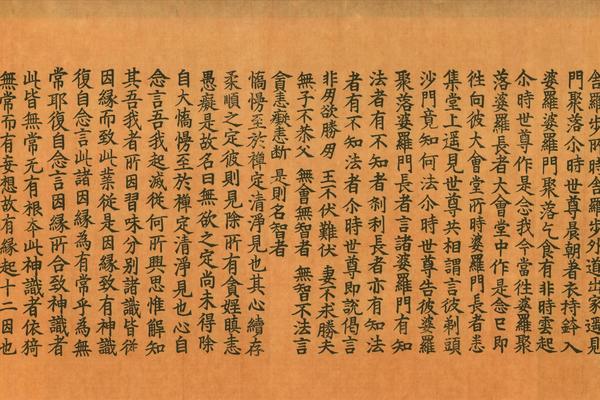 舍羅步所時舍羅步外道出家遥見
門聚落尒時世尊晨朝著衣持鉢入
婆羅婆羅門聚落乞食有非時雲起
尒時世尊作是念我今當往婆羅聚
落婆羅長者大會堂中作是念已即
往向彼大會堂所時婆羅門長者悉
集堂上遥見世尊共相謂言彼剃頭
沙門竟知何法尒時世尊告彼婆羅
聚落婆羅門長者言諸婆羅門有知
法者有不知者刹利長者亦有知法
者有不知法者尒時世尊即說偈言
非朋欲勝朋 王不伏難伏 妻不求勝夫
無子不恭父 無會無智者 無智不法言
貪恚癡悉断 是則名智者
憍慢至於禅定清淨見也其心續存
柔順之定彼則見除所有貪婬瞋恚
愚癡是故名曰無欲之定尚未得除
自大憍慢至於禅定清淨見也心自
念言吾我起滅從何所興思惟解知
其吾我者所因習味分别諸識皆從
因緣而致此業從是因緣致有神識
復自念言此諸因緣為有常乎為無
常耶復自念言因緣所合致神識者
此皆無常无有根夲此神識者依猗
無常而有妄想故有緣起十二因也